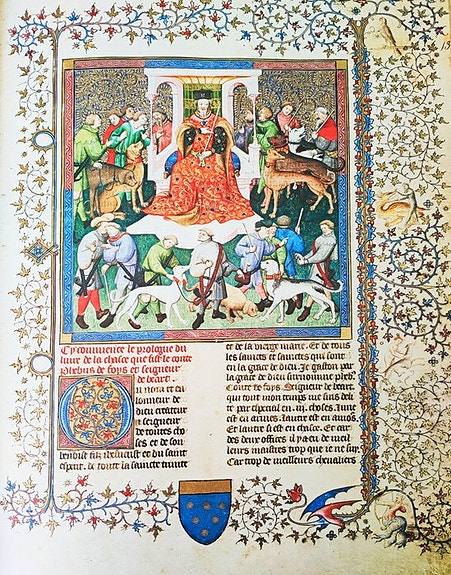 Cy commence le prologue du
liure de la chase que fist le conte
Phebus de foys et seigneur
de beart.
u nom et en
honneur de
dieu createur
et seigneur
de toutes cho
ses et de son
benoist filz ihesucrist et du saint
esperit. de toute la saincte trinite
et de la vierge marie. Et de tous
les saincts et sainctes qui sont
en la grace de dieu. Je gaston par
la grace de dieu surnomme pheb
Conte de foys. Seigneur de beart.
qui tout mon temps me suis delit
te par especial en .iii. choses. lune
est en armes. lautre est en amours
Et lautre si est en chasce. Et car
des deux offices il y a eu de meil
leurs maistres trop que ie ne suy.
Car trop de meilleurs chevaliers